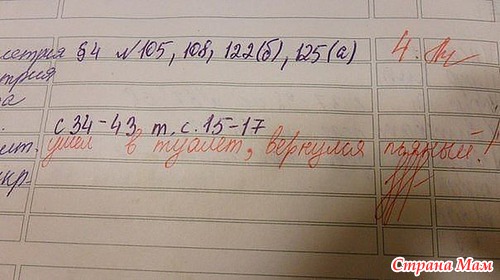 метрия §4 №105, 108, 122(б), 125(а) 4.
трия
а
с 34-43 т. с. 15-17
ит. ушел в туалет, вернулся пьяный!
укр.
Страна Мам